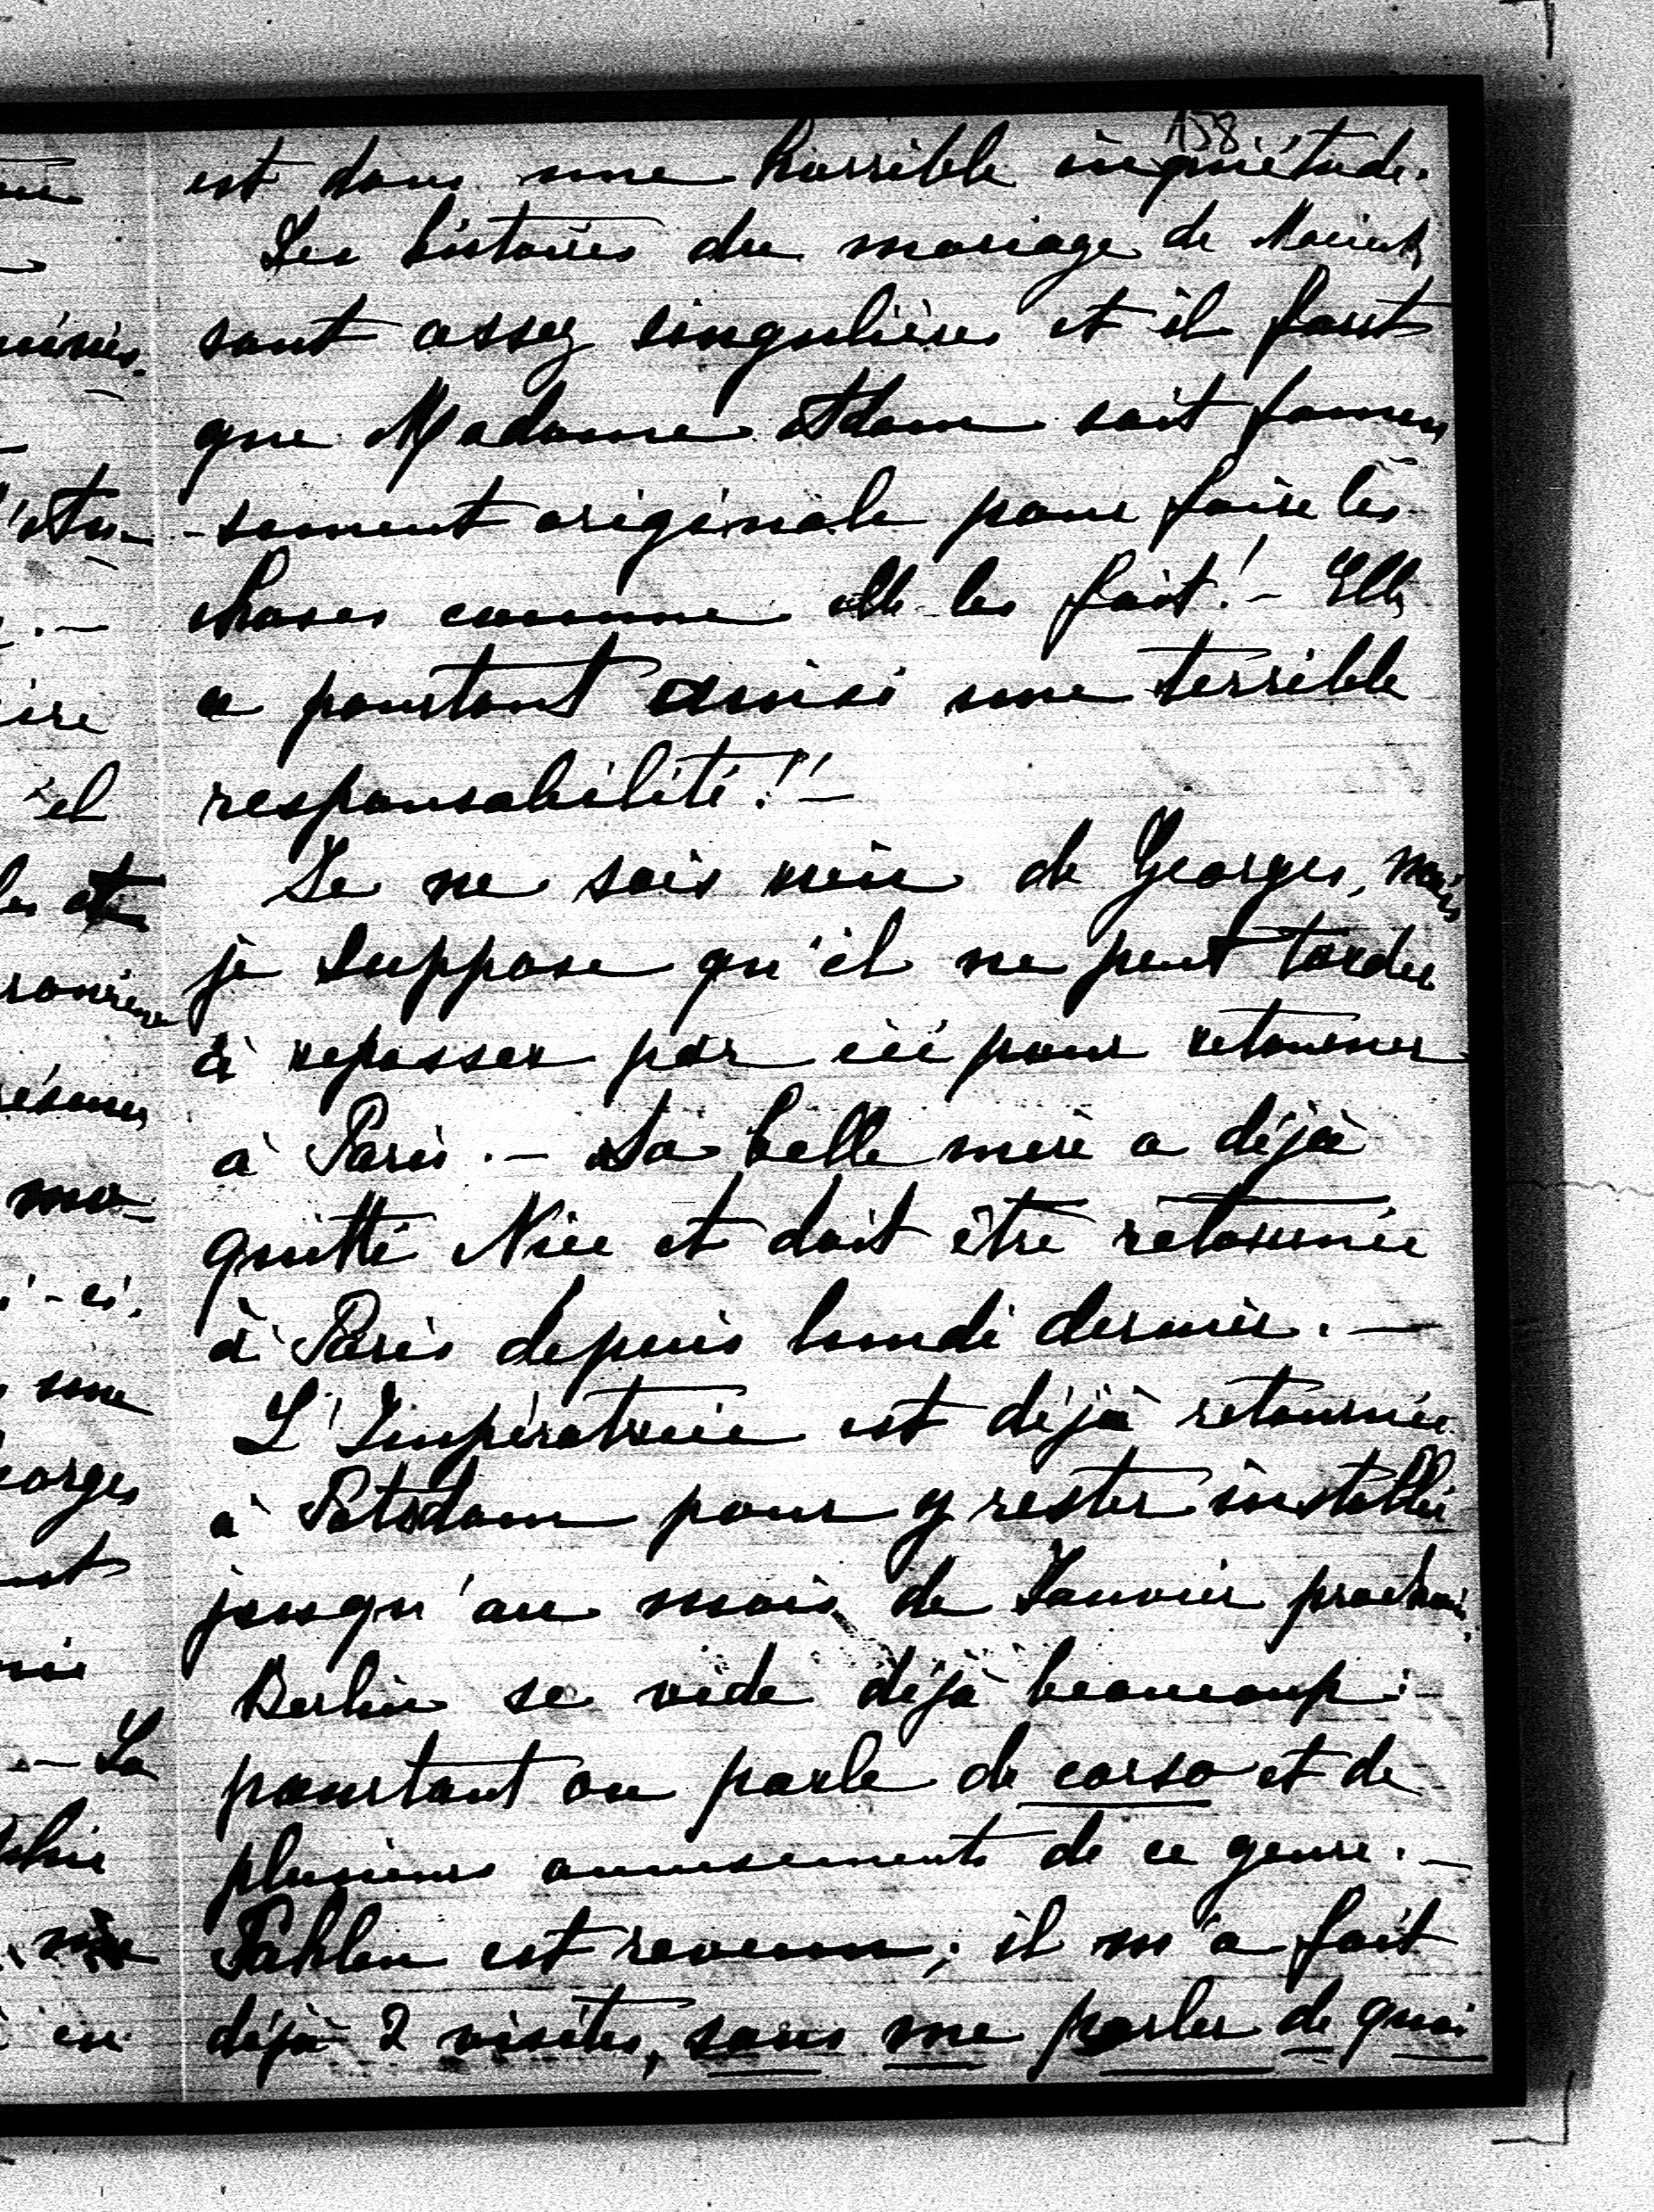 158
est dans une horrible inquiétude.
Les histoires du mariage de
sont assez singulières et il faut
que Madame Adam soit fameu
-sement originale pour faire les
choses comme elle les fait! – Elle
a pourtant ainsi une terrible
responsabilité!! –
Je ne sais rien de Georges, mais
je suppose qu'il ne peut tarder
à repasser par ici pour retourner
à Paris. – Sa belle mère a déjà
quitté Nice et doit être retournée
à Paris depuis lundi dernier. –
L'Impératrice est déjà retournée
à Potsdam pour y rester installée
jusqu'au mois de Janvier prochain.
Berlin se vide déjà beaucoup:
pourtant on parle de corso et de
plusieurs amusements de ce genre. –
Pahlen est revenu; il m'a fait
déjà 2 visites, sans me parler de quoi